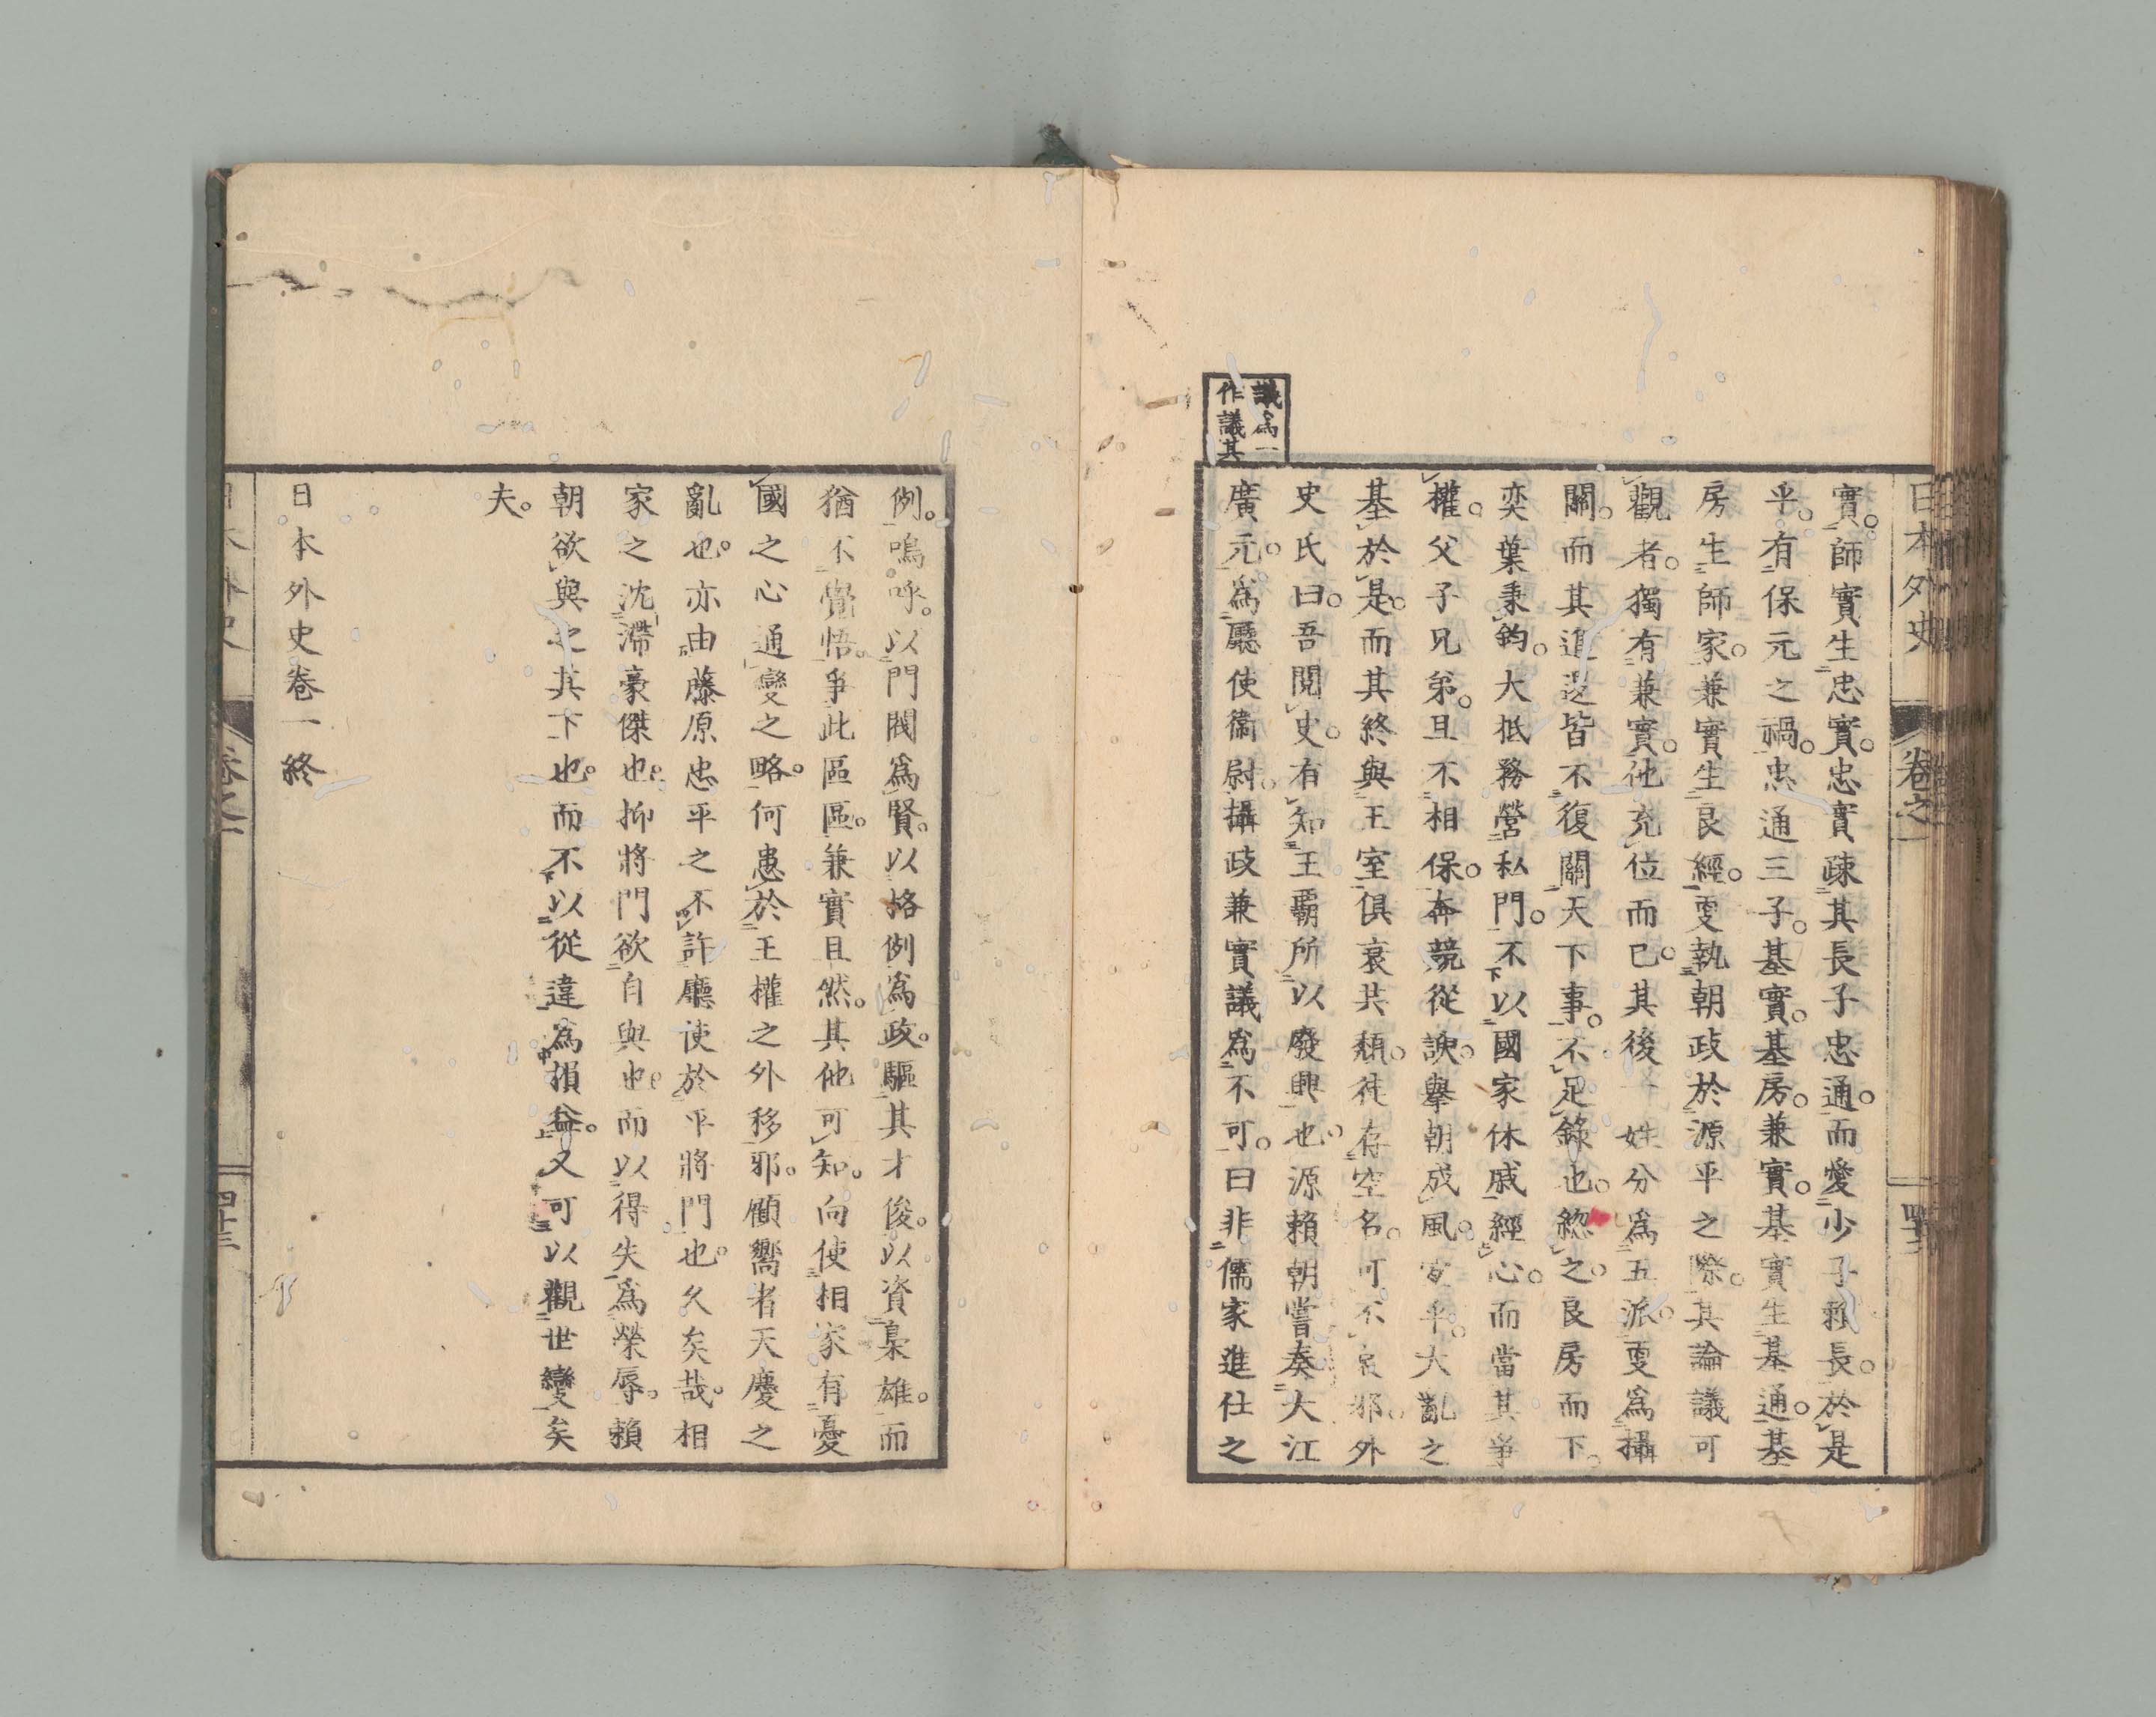 日本外史
卷之一
四十二
議爲一
作議其
實。師實生忠實。忠實疎其長子忠通。而愛少子賴長。於是
乎。有保元之禍。忠通三子。基實。基房。兼實。基實生基通。基
房生師家。兼實生良經。更執朝政於源平之際。其論議可
觀者。獨有兼實。他充位而已。其後一姓分爲五派。更爲攝
關。而其進退皆不復關天下事。不足錄也。緫之。良房而下。
奕葉秉鈞。大抵務營私門。不以國家休戚經心。而當其爭
權。父子兄弟。且不相保。奔競從諛。舉朝成風。宜乎。大亂之
基於是。而其終與王室俱衰共頽。徒存空名。可不哀邪。外
史氏曰。吾閱史。有知王霸所以廢興也。源賴朝嘗奏大江
廣元。爲廳使衞尉。攝政兼實議爲不可。曰非儒家進仕之
例。嗚呼。以門閥爲賢。以格例爲政。驅其才俊。以資梟雄。而
猶不覺悟。爭此區區。兼實且然。其他可知。向使相家有憂
國之心通變之略。何患於王權之外移邪。顧嚮者天慶之
亂也。亦由藤原忠平之不許廳使於平將門也。久矣哉。相
家之沈滯豪傑也。抑將門欲自與也。而以得失爲榮辱。賴
朝欲與之其下也。而不以從違爲損益。又可以觀世變矣
夫。
日本外史卷一終
卷之一
四十三